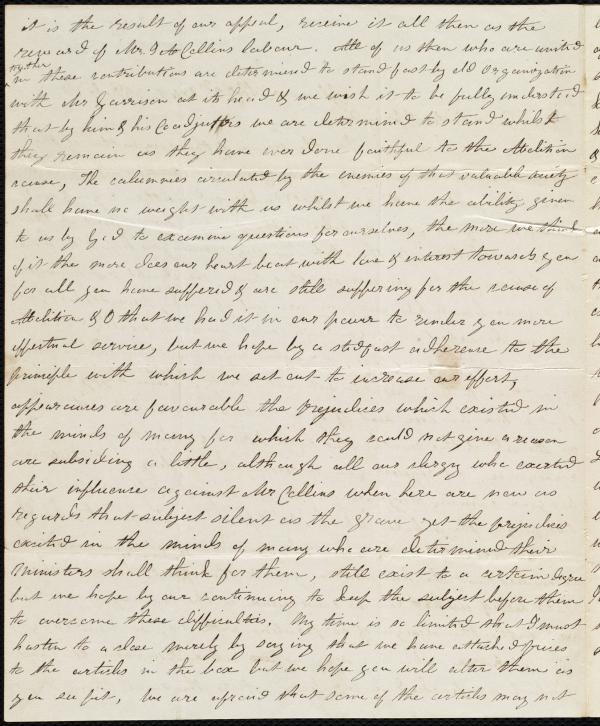 it is the result of our appeal, receive it all then as the
reward of Mr. J A Collins labour. All of us then who are united
together
in these contributions are determined to stand fast by old Organization
with Mr Garrison at its head & we wish it to be fully understood
that by him & his Coadjutors we are determined to stand whilst
they remain as they have ever done faithful to the Abolition
cause, The calumnies circulated by the enemies of that valuable society
shall have no weight with us whilst we have the ability given
to us by God to examine questions for ourselves, the more we think
of it the more does our heart beat with love & interest towards you
for all you have suffered & are still suffering for the cause of
Abolition & O that we had it in our power to render you more
effectual service, but we hope by a stedfast adherence to the
principle with which we set out to increase our effort,
appearances are favourable the prejudices which existed in
the minds of many for which they could not give a reason
are subsiding a little, although all our clergy who exerted
their influence against Mr Collins when here are now as
regards that subject silent as the grave yet the prejudices
excited in the minds of many who are determined their
ministers shall think for them, still exist to a certain degree
but we hope by our continuing to keep the subject before them
to overcome these difficulties. My time is so limited that I must
hasten to a close merely by saying that we have attached prices
to the articles in the box but we hope you will alter them as
you see fit, We are afraid that some of the articles may not